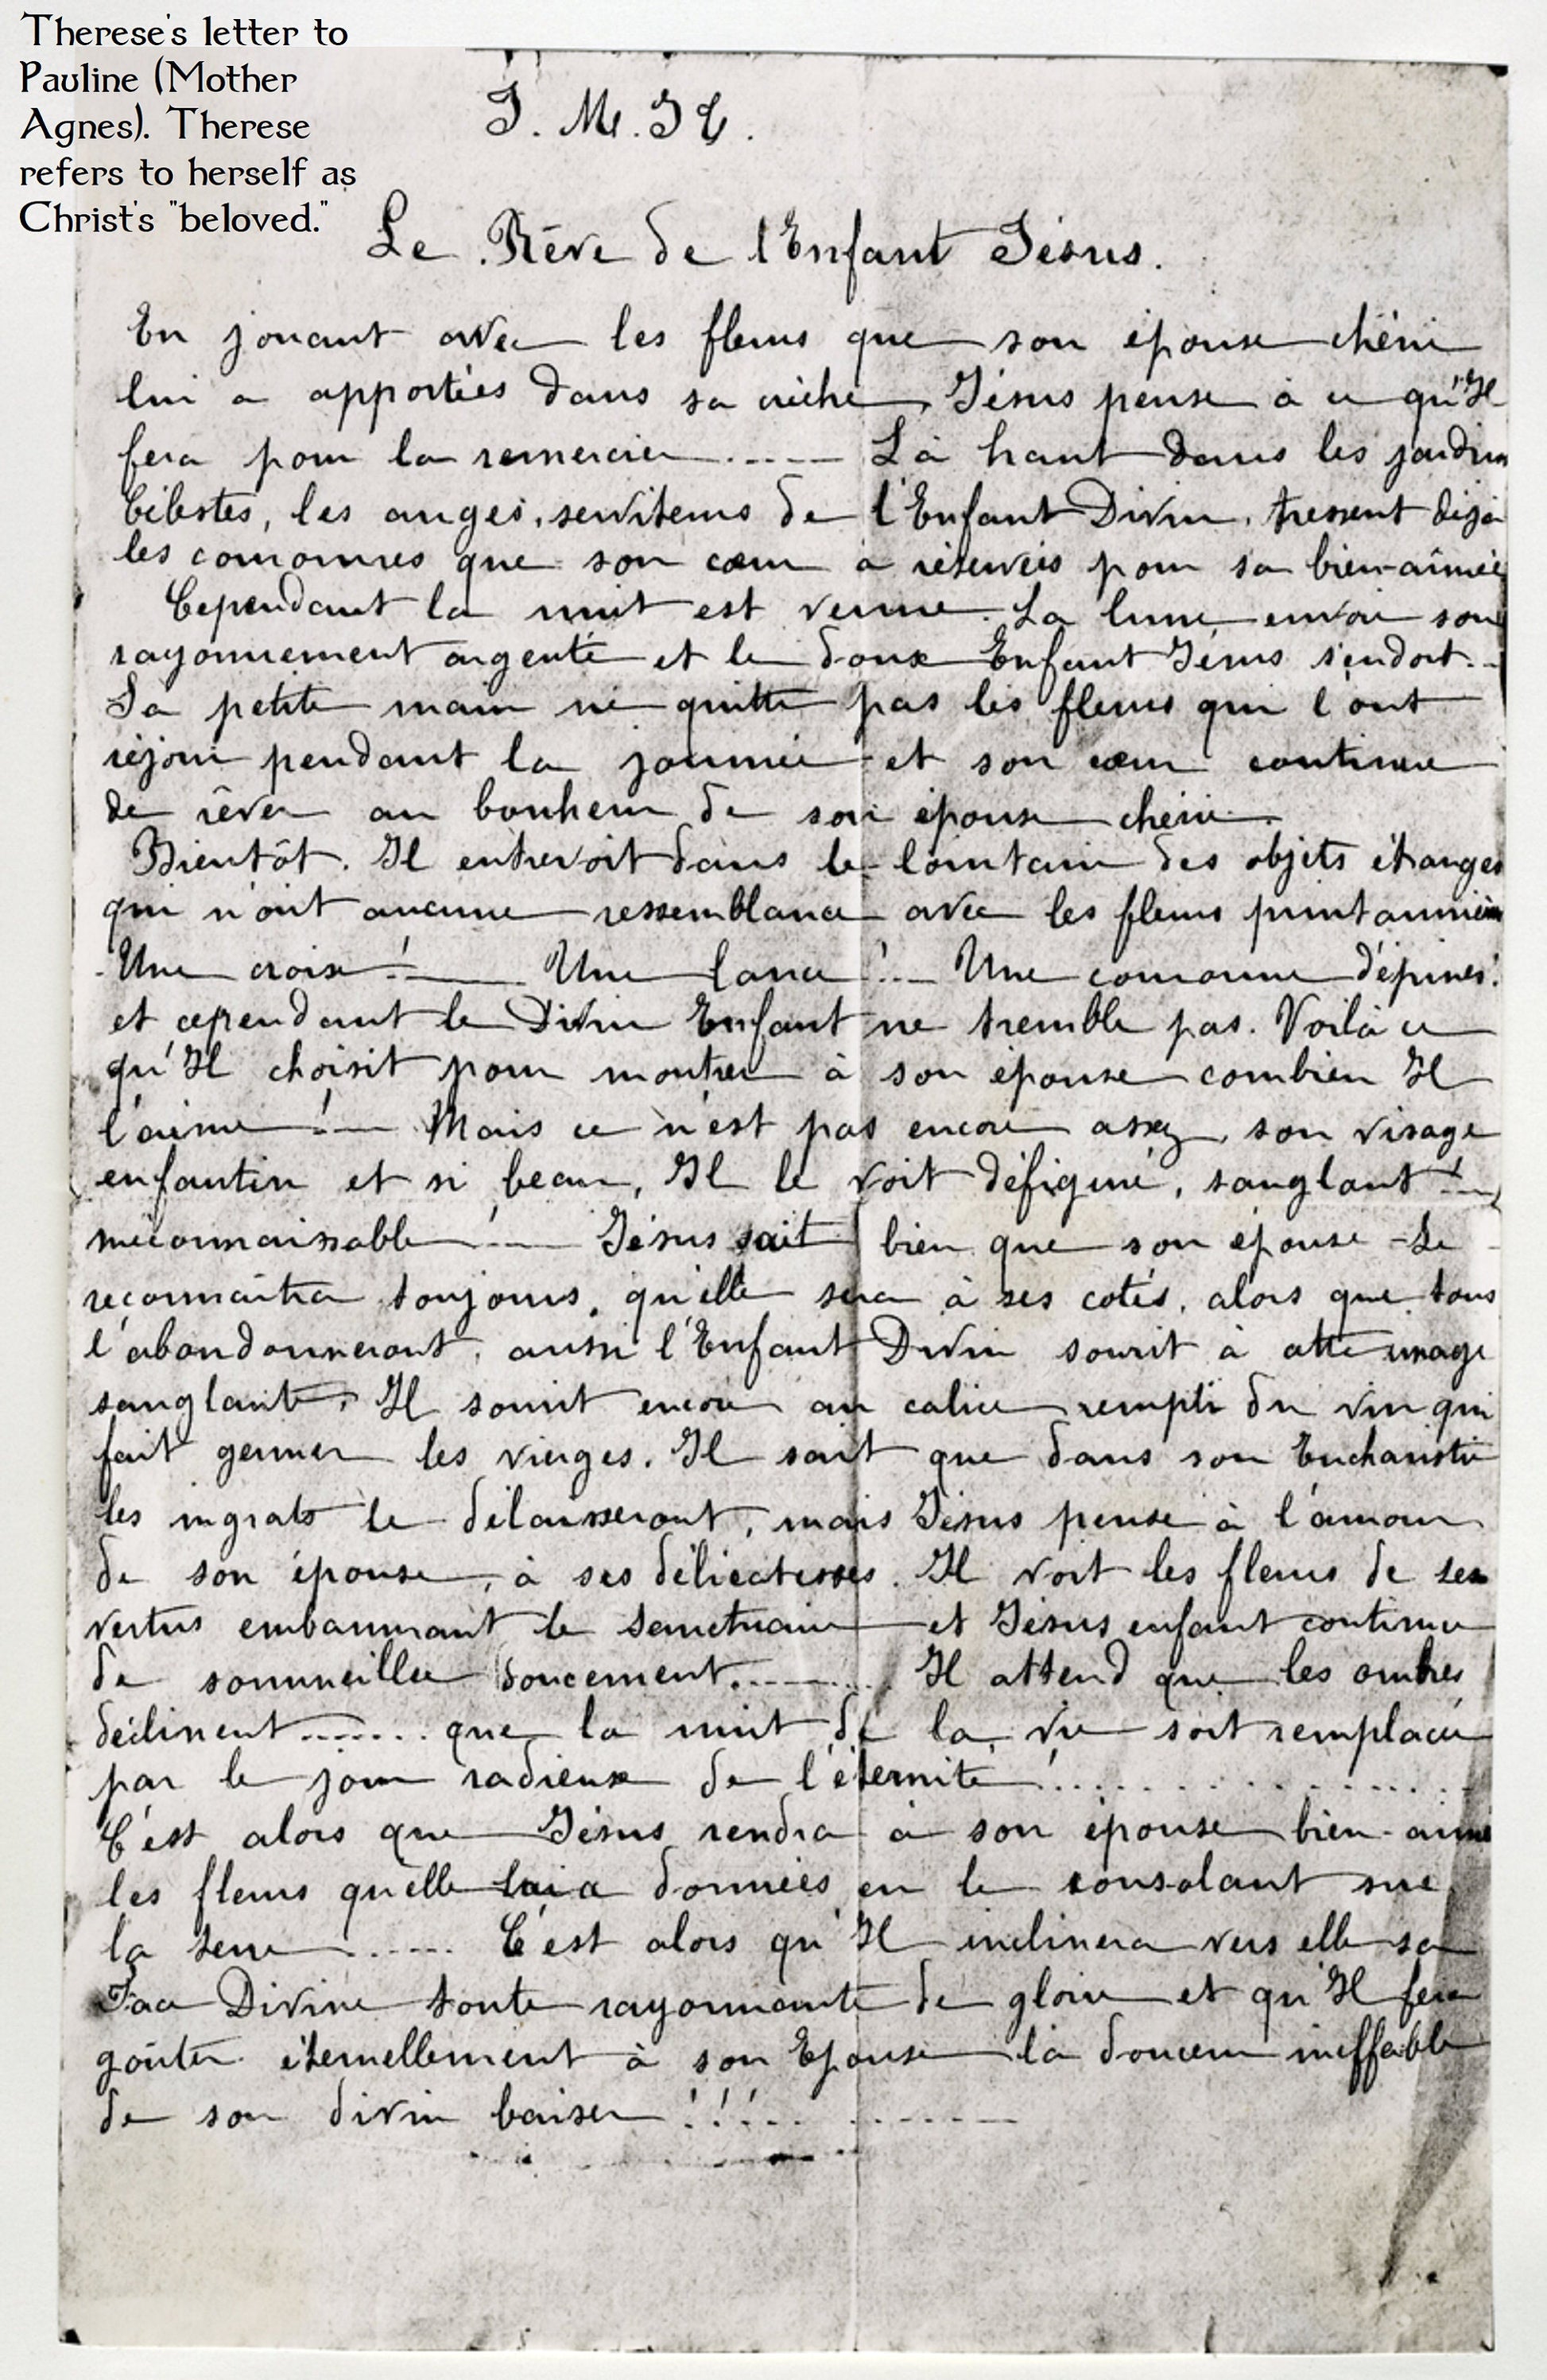 Therese's letter to
Pauline (Mother
Agnes). Therese
refers to herself as
Christ's "beloved."
J. M. J T.
Le Rêve de l'Enfant Jésus.
En jouant avec les fleurs que son épouse chérie
lui a apportées dans sa crèche, Jésus pense à ce qu'Il
fera pour la remercier ..... Là haut dans les jardins
Célestes, les anges, serviteurs de l'Enfant Divin, tressent déjà
les couronnes que son cœur a réservées pour sa bien-aimée
Cependant la nuit est venue. La lune envoie son
rayonnement argenté et le doux Enfant Jésus s'endort...
Sa petite main ne quitte pas les fleurs qui l'ont
réjoui pendant la journée et son cœur continue
de rêver au bonheur de son épouse chérie.
Bientôt, Il entrevoit dans le lointain des objets étranges
qui n'ont aucune ressemblance avec les fleurs printannières
Une croix !... Une lance !... Une couronne d'épines!
et cependant le Divin Enfant ne tremble pas. Voilà ce
qu'Il choisit pour montrer à son épouse combien Il
l'aime !... Mais ce n'est pas encore assez, son visage
enfantin et si beau, Il le voit défiguré, sanglant !...
méconnaissable !.... Jésus sait bien que son épouse Le
reconnaîtra toujours, qu'elle sera à ses cotés, alors que tous
l'abandonneront, aussi l'Enfant Divin sourit à cette image
sanglante, Il sourit encore au calice rempli du vin qui
fait germer les vierges. Il sait que dans son Eucharistie
les ingrats le délaisseront, mais Jésus pense à l'amour
de son épouse, à ses délicatesses. Il voit les fleurs de ses
vertus embaumant le sanctuaire et Jésus enfant continue
de sommeiller doucement......... Il attend que les ombres
déclinent........ que la nuit de la vie soit remplacée
par le jour radieux de l'éternité !....................
C'est alors que Jésus rendra à son épouse bien-aimée
les fleurs qu'elle lui a données en le consolant sur
la terre ...... C'est alors qu'Il inclinera vers elle sa
Face Divine toute rayonnante de gloire et qu'Il fera
goûter éternellement à son Epouse la douceur ineffable
de son divin baiser !!!... ........